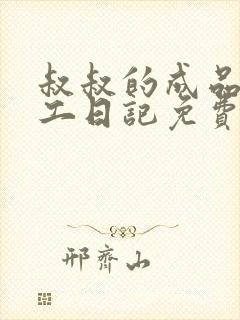 叔叔的成品
工日記免費
邢齊山